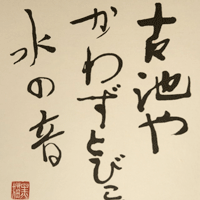 古池や
かわずとびこ
水の音